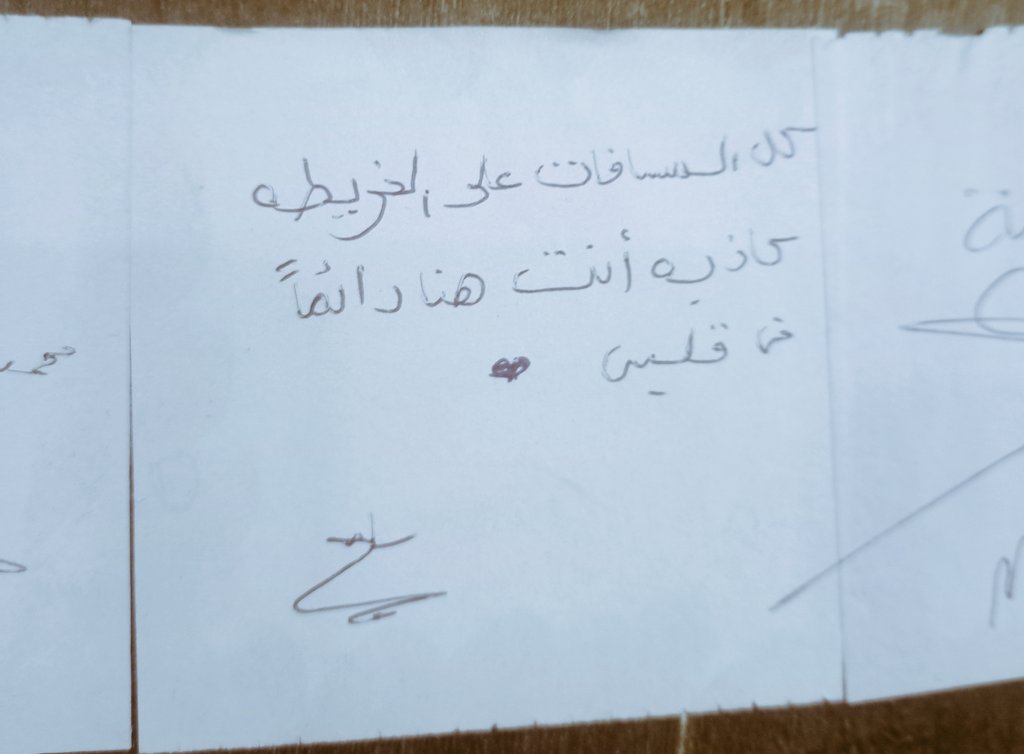 كل المسافات على الخريطه
كاذبه أنت هنا دائماً
في قلبي
محمد